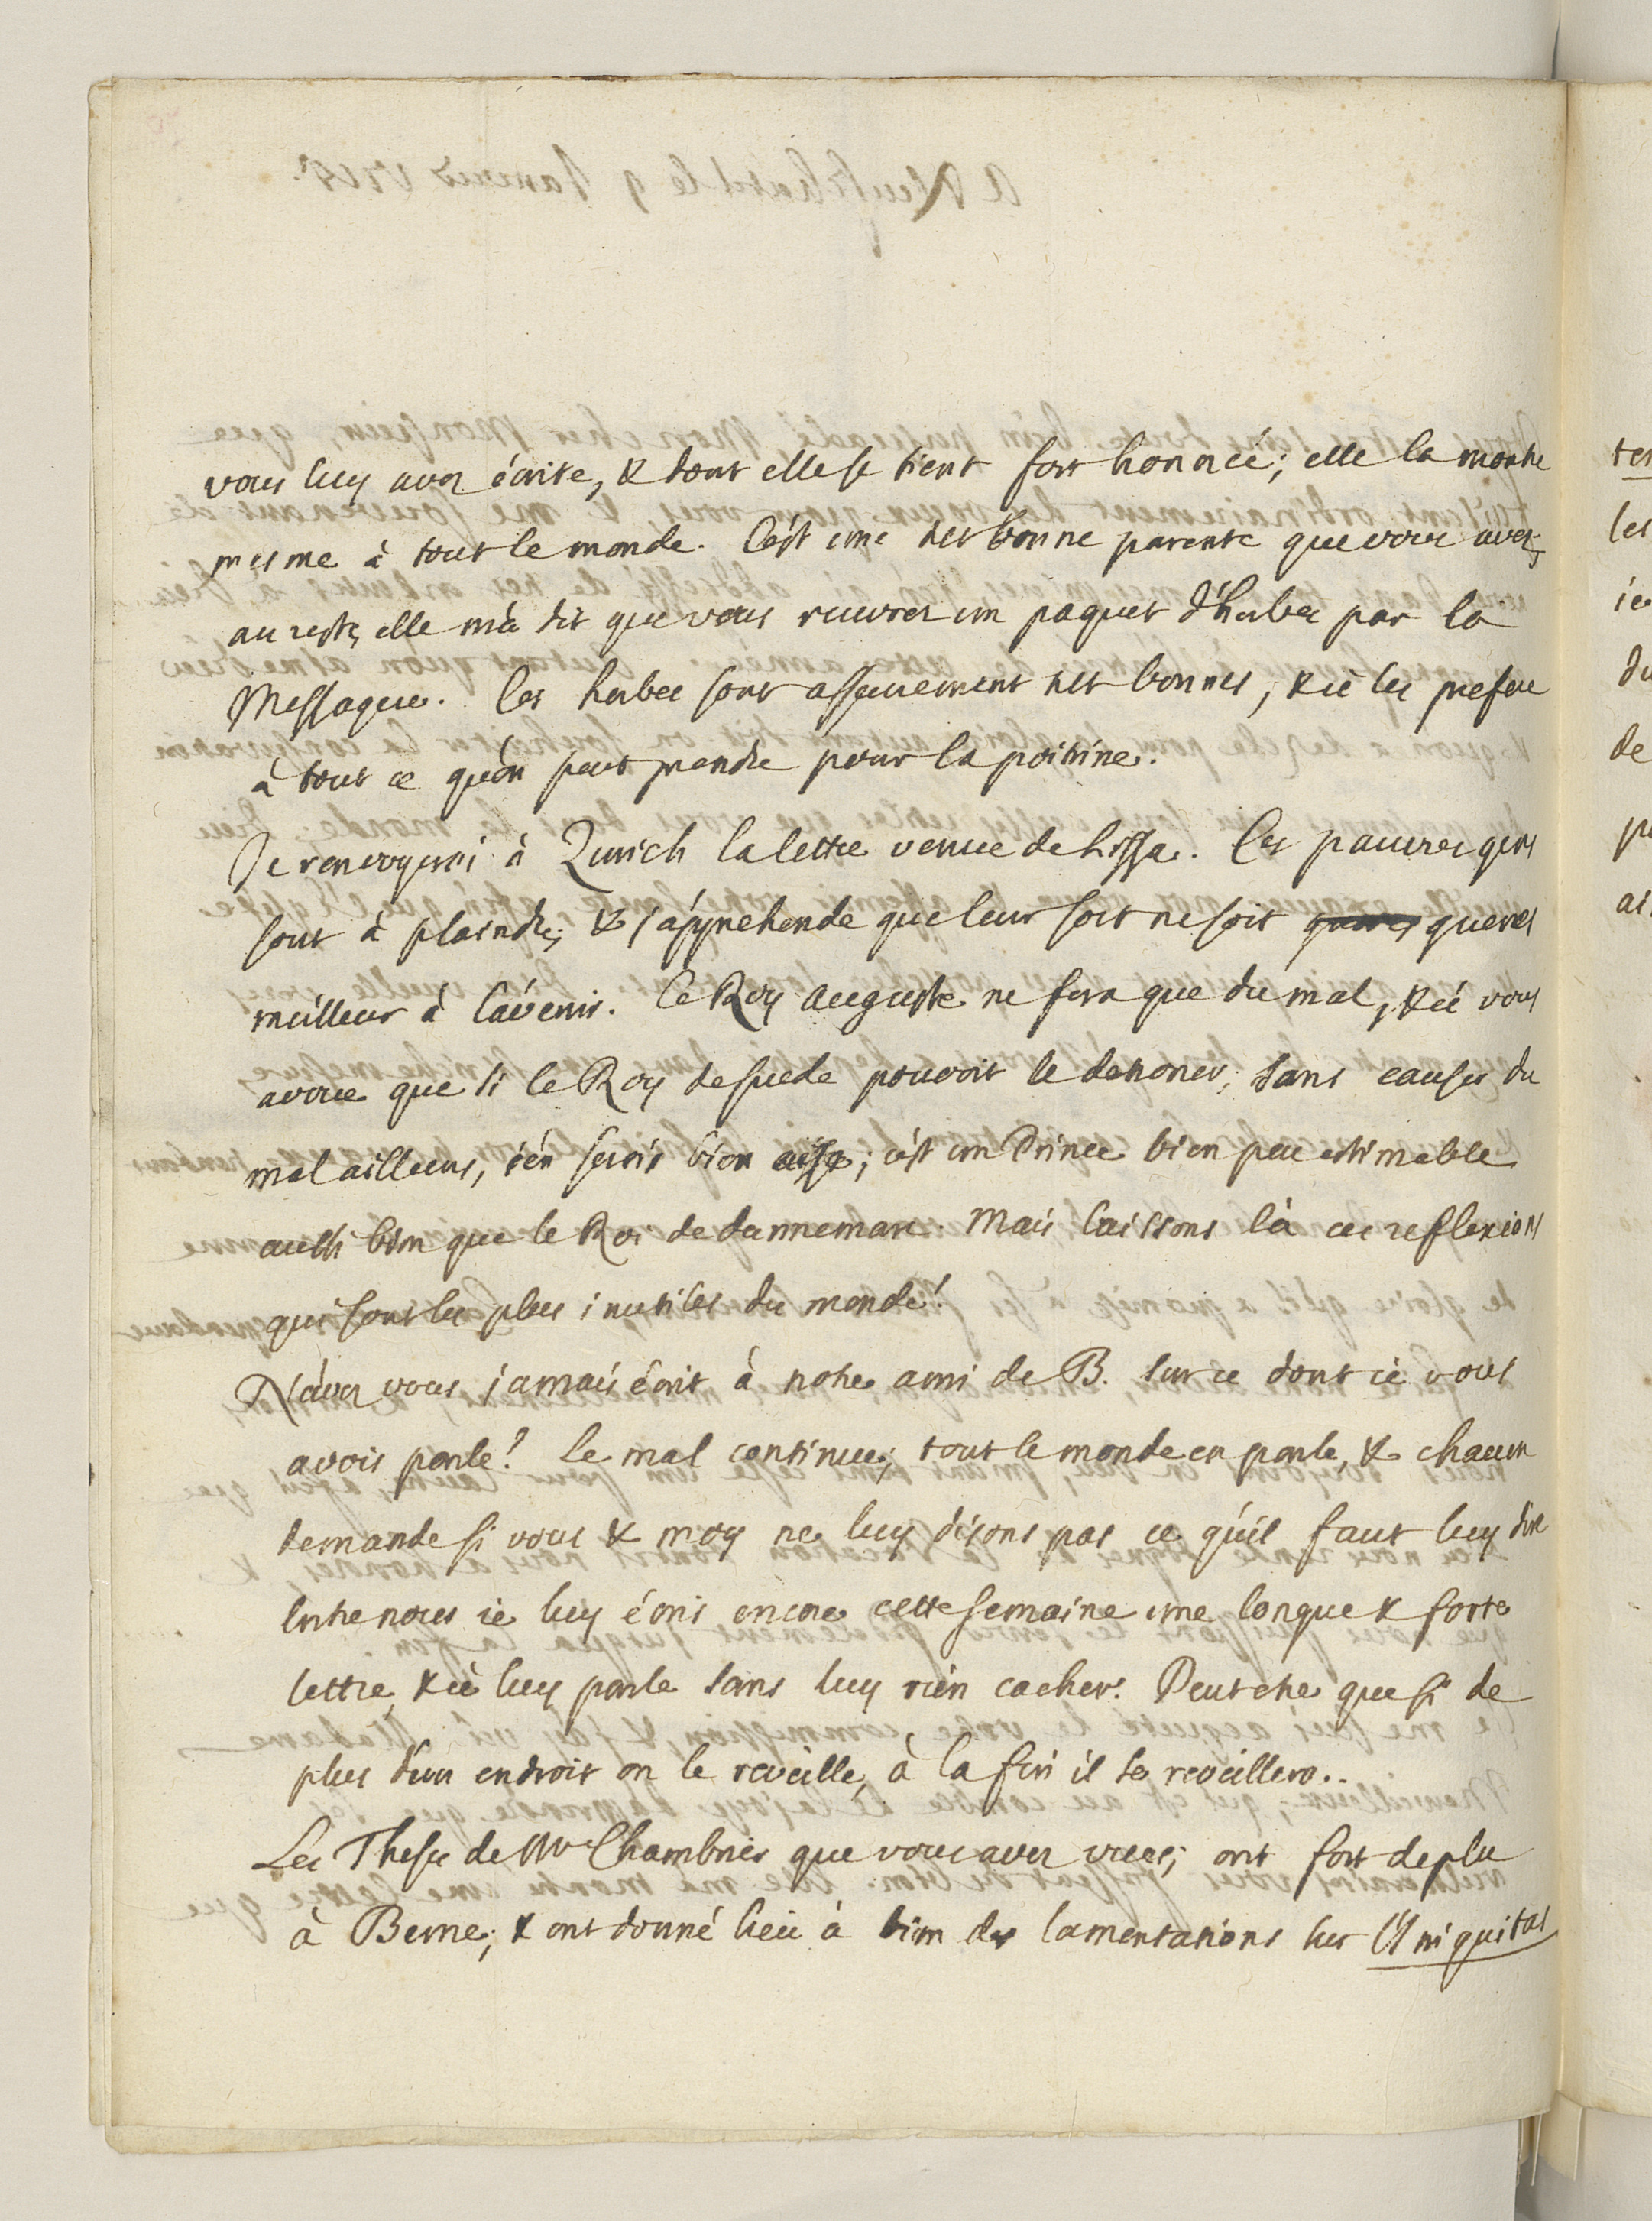 vous luy avez écrite, & dont elle se tient fort honorée; elle la montre
mesme à tout le monde. C'est une tres bonne parente que vous avez;
au reste, elle m'a dit que vous recevrez un paquet d'herbes par la
Messagere. Ces herbes sont assurement tres bonnes, & ie les prefere
à tout ce qu'on peut prendre pour la poitrine.
Je renvoyerai à Zurich la lettre venue de Lissa. Ces pauvres gens
sont à plaindre; & j'apprehende que leur sort ne soit gueres
meilleur à l'avenir. Le Roy Auguste ne fera que du mal, & ie vous
avoue que si le Roy de Suede pouvoit le detroner, sans causer du
mal ailleurs, i'en serois bien aise; c'est un Prince bien peu estimable
aussi bien que le Roi de dannemarc. Mais laissons là ces reflexions
qui sont les plus inutiles du monde!
N'avez vous jamais écrit à notre ami de B. sur ce dont ie vous
avois parlé? Le mal continue; tout le monde en parle, & chacun
demande si vous & moy ne luy disons pas ce qu'il faut luy dire
Entre nous ie luy écris encore cette semaine une longue & forte
lettre, & ie luy parle sans luy rien cacher. Peutetre que si de
plus d'un endroit on le reveille, à la fin il se reveillera..
Les Theses de Mr Chambrier que vous avez vues; ont fort deplu
à Berne; & ont donné lieu à bien des lamentations sur l'Iniquitas